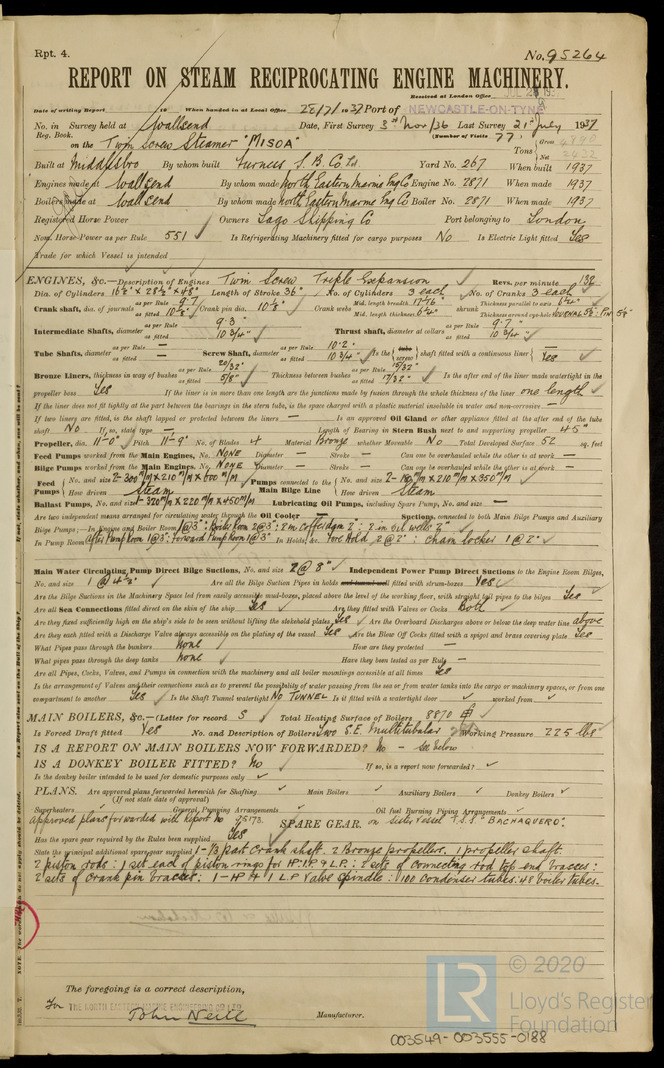 Rpt. 4.
No. 95264
REPORT ON STEAM RECIPROCATING ENGINE MACHINERY.
Received at London Office
Date of writing Report 19 When handed in at Local Office 28/7/1937 Port of NEWCASTLE-ON-TYNE
No. in Survey held at Wallsend Date, First Survey 3rd Nov/36 Last Survey 21st July 1937
Reg. Book. (Number of Visits 77)
on the Twin Screw Steamer "MISOA" Tons Gross Net
Built at Middlesbro By whom built Furness S. B. Co Ltd. Yard No. 267 When built 1937
Engines made at Wallsend By whom made North Eastern Marine Eng Co Engine No. 2871 When made 1937
Boilers made at Wallsend By whom made North Eastern Marine Eng Co Boiler No. 2871 When made 1937
Registered Horse Power Owners Lago Shipping Co Port belonging to London
Nom. Horse-Power as per Rule 551 Is Refrigerating Machinery fitted for cargo purposes No Is Electric Light fitted Yes
Trade for which Vessel is intended
ENGINES, &c.—Description of Engines Twin Screw Triple Expansion Revs. per minute
Dia. of Cylinders Length of Stroke 36" No. of Cylinders 3 each No. of Cranks 3 each
Crank shaft, dia. of journals as per Rule 9.7 as fitted 10 1/8" Crank pin dia. 10 1/8" Crank webs Mid. length breadth Mid. length thickness shrunk Thickness parallel to axis Thickness around eye-hole
Intermediate Shafts, diameter as per Rule 9.3 as fitted 10 3/4" Thrust shaft, diameter at collars as per Rule 9.7 as fitted 10 3/4"
Tube Shafts, diameter as per Rule — as fitted — Screw Shaft, diameter as per Rule 10.2 as fitted 10 3/4" Is the tube screw shaft fitted with a continuous liner Yes
Bronze Liners, thickness in way of bushes as per Rule as fitted 5/8" Thickness between bushes as per Rule 15/32" as fitted 17/32" Is the after end of the liner made watertight in the
propeller boss Yes If the liner is in more than one length are the junctions made by fusion through the whole thickness of the liner one length
If the liner does not fit tightly at the part between the bearings in the stern tube, is the space charged with a plastic material insoluble in water and non-corrosive —
If two liners are fitted, is the shaft lapped or protected between the liners — Is an approved Oil Gland or other appliance fitted at the after end of the tube
shaft No If so, state type — Length of Bearing in Stern Bush next to and supporting propeller 45"
Propeller, dia. 11'-0" Pitch 11'-9" No. of Blades 4 Material Bronze whether Moveable No Total Developed Surface 52 sq. feet
Feed Pumps worked from the Main Engines, No. NONE Diameter — Stroke — Can one be overhauled while the other is at work —
Bilge Pumps worked from the Main Engines, No. NONE Diameter — Stroke — Can one be overhauled while the other is at work —
Feed Pumps No. and size 2-300 m/m x 210 m/m x 600 m/m Pumps connected to the Main Bilge Line No. and size
How driven Steam How driven Steam
Ballast Pumps, No. and size 1-320 m/m x 220 m/m x 450 m/m Lubricating Oil Pumps, including Spare Pump, No. and size —
Are two independent means arranged for circulating water through the Oil Cooler — Suctions, connected to both Main Bilge Pumps and Auxiliary
Bilge Pumps;—In Engine and Boiler Room 1@3": Boiler Room 2@3": 2 in cofferdam 2": 2 in oil wells 2"
In Pump Room After Pump Room 1@3": Forward Pump Room 1@3" In Holds, &c. Fore Hold 2@2": chain locker 1@2"
Main Water Circulating Pump Direct Bilge Suctions, No. and size 2@8" Independent Power Pump Direct Suctions to the Engine Room Bilges,
No. and size 1@4½" Are all the Bilge Suction Pipes in holds and tunnel well fitted with strum-boxes Yes
Are the Bilge Suctions in the Machinery Space led from easily accessible mud-boxes, placed above the level of the working floor, with straight tail pipes to the bilges Yes
Are all Sea Connections fitted direct on the skin of the ship Yes Are they fitted with Valves or Cocks Both
Are they fixed sufficiently high on the ship's side to be seen without lifting the stokehold plates Yes Are the Overboard Discharges above or below the deep water line above
Are they each fitted with a Discharge Valve always accessible on the plating of the vessel Yes Are the Blow Off Cocks fitted with a spigot and brass covering plate Yes
What Pipes pass through the bunkers None How are they protected —
What pipes pass through the deep tanks None Have they been tested as per Rule —
Are all Pipes, Cocks, Valves, and Pumps in connection with the machinery and all boiler mountings accessible at all times Yes
Is the arrangement of Valves and their connections such as to prevent the possibility of water passing from the sea or from water tanks into the cargo or machinery spaces, or from one
compartment to another Yes Is the Shaft Tunnel watertight NO TUNNEL Is it fitted with a watertight door worked from
MAIN BOILERS, &c.—(Letter for record S) Total Heating Surface of Boilers 8870
Is Forced Draft fitted Yes No. and Description of Boilers Two S.E. Multitubular Working Pressure 225 lbs
IS A REPORT ON MAIN BOILERS NOW FORWARDED? No – see below
IS A DONKEY BOILER FITTED? No If so, is a report now forwarded?
Is the donkey boiler intended to be used for domestic purposes only
PLANS. Are approved plans forwarded herewith for Shafting Main Boilers Auxiliary Boilers Donkey Boilers
(If not state date of approval)
Superheaters General Pumping Arrangements Oil fuel Burning Piping Arrangements
Approved plans forwarded with Report No 95173. on Sister Vessel T.S.S "BACHAQUERO".
SPARE GEAR.
Has the spare gear required by the Rules been supplied Yes
State the principal additional spare gear supplied 1-1/3 part Crank shaft. 2 Bronze propellers. 1 propeller shaft.
2 piston rods: 1 set each of piston rings for HP: IP & LP: 2 sets of connecting rod top end brasses:
2 sets of Crank pin brasses: 1-HP & 1 L.P Valve spindle: 100 Condenser tubes: 48 boiler tubes.
The foregoing is a correct description,
For THE NORTH EASTERN MARINE ENGINEERING CO LTD
John Neill Manufacturer.
© 2020
LR
Lloyd's Register
Foundation
003549-003555-0188